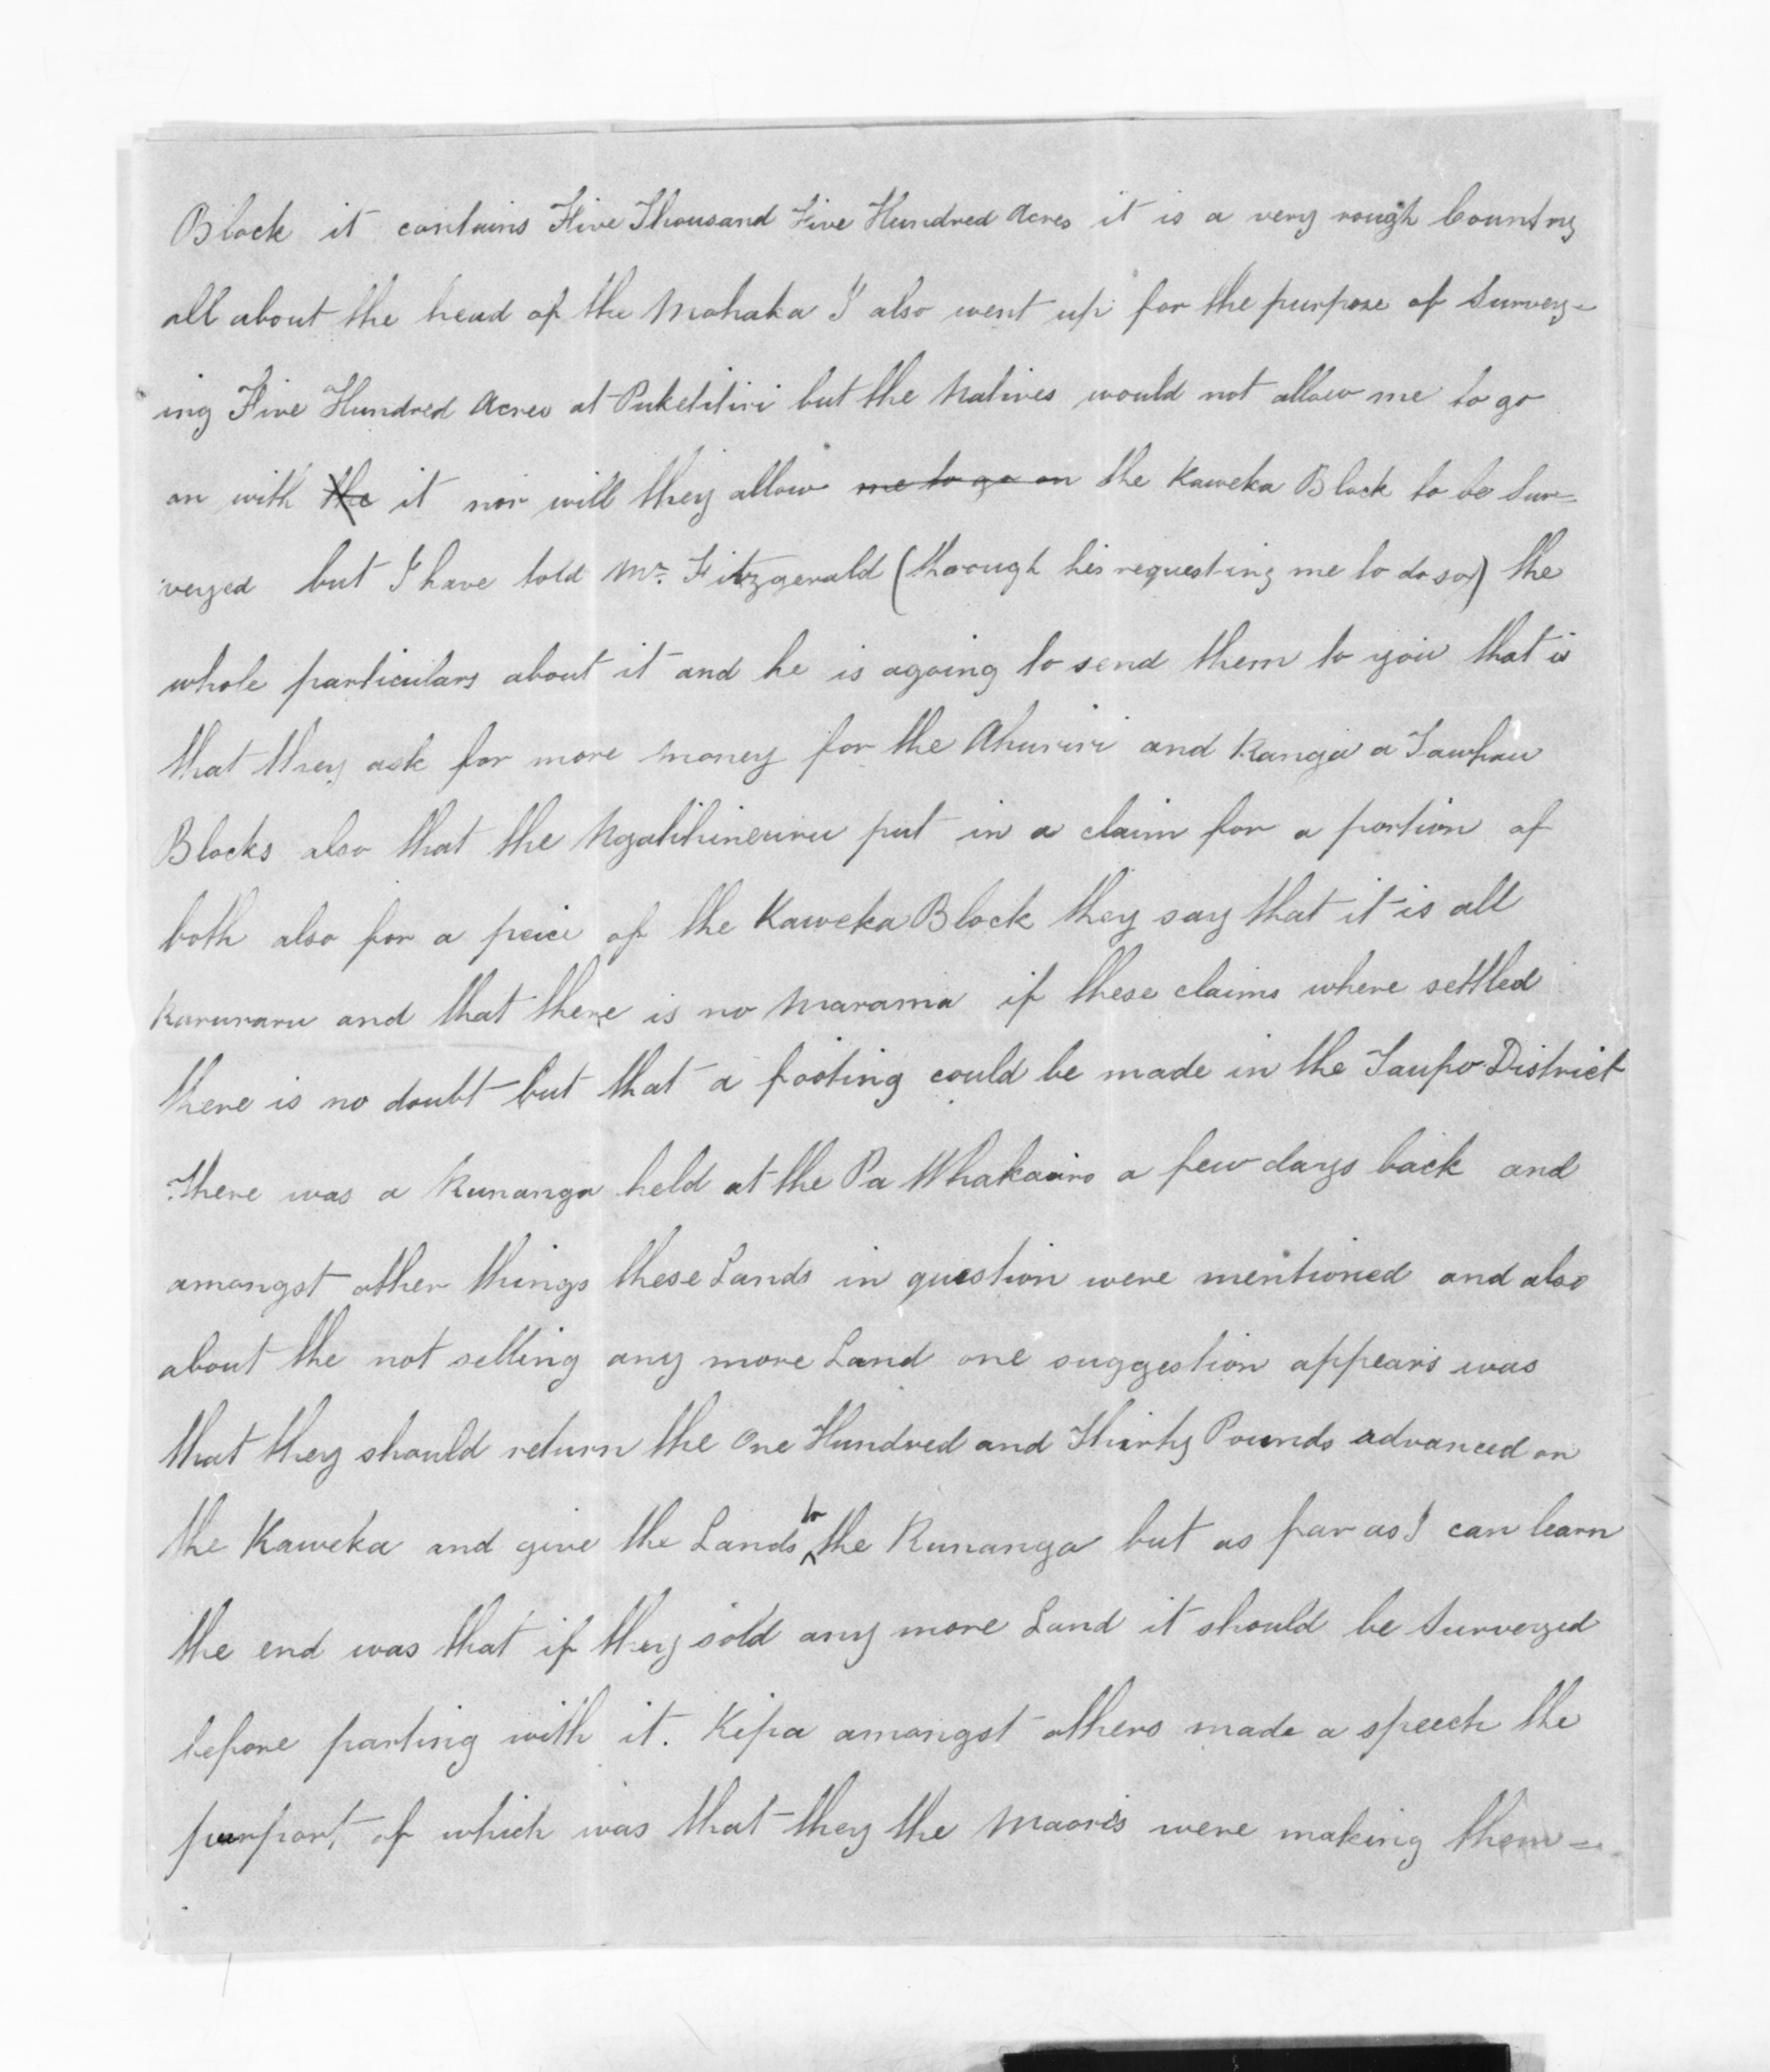 Block it contains Five Thousand Five Hundred Acres it is a very rough Country
all about the head of the Mohaka I also went up for the purpose of Survey-
ing Five Hundred Acres at Puketitiri but the Natives would not allow me to go
on with the it nor will they allow me to go on the Kaweka Block to be Sur=
veyed but I have told Mr. Fitzgerald (thorough his requesting me to do so) the
whole particulars about it and he is agoing to send them to you that is
that they ask for more money for the Ahuriri and Ranga a Tawhau
Blocks also that the Ngatihineuru put in a claim for a portion of
both also for a peice of the Kaweka Block they say that it is all
Raruraru and that there is no Marama if these claims where settled
there is no doubt but that a footing could be made in the Taupo District
There was a Runanga held at the Pa Whakairo a few days back and
amongst other things these Lands in question were mentioned and also
about the not selling any more Land one suggestion appears was
that they should return the One Hundred and Thirty Pounds advanced on
the Kaweka and give the Lands to the Runanga but as far as I can learn
the end was that if they sold any more Land it should be Surveyed
before parting with it. Kipa amongst others made a speech the
purport, of which was that they the Maoris were making them=